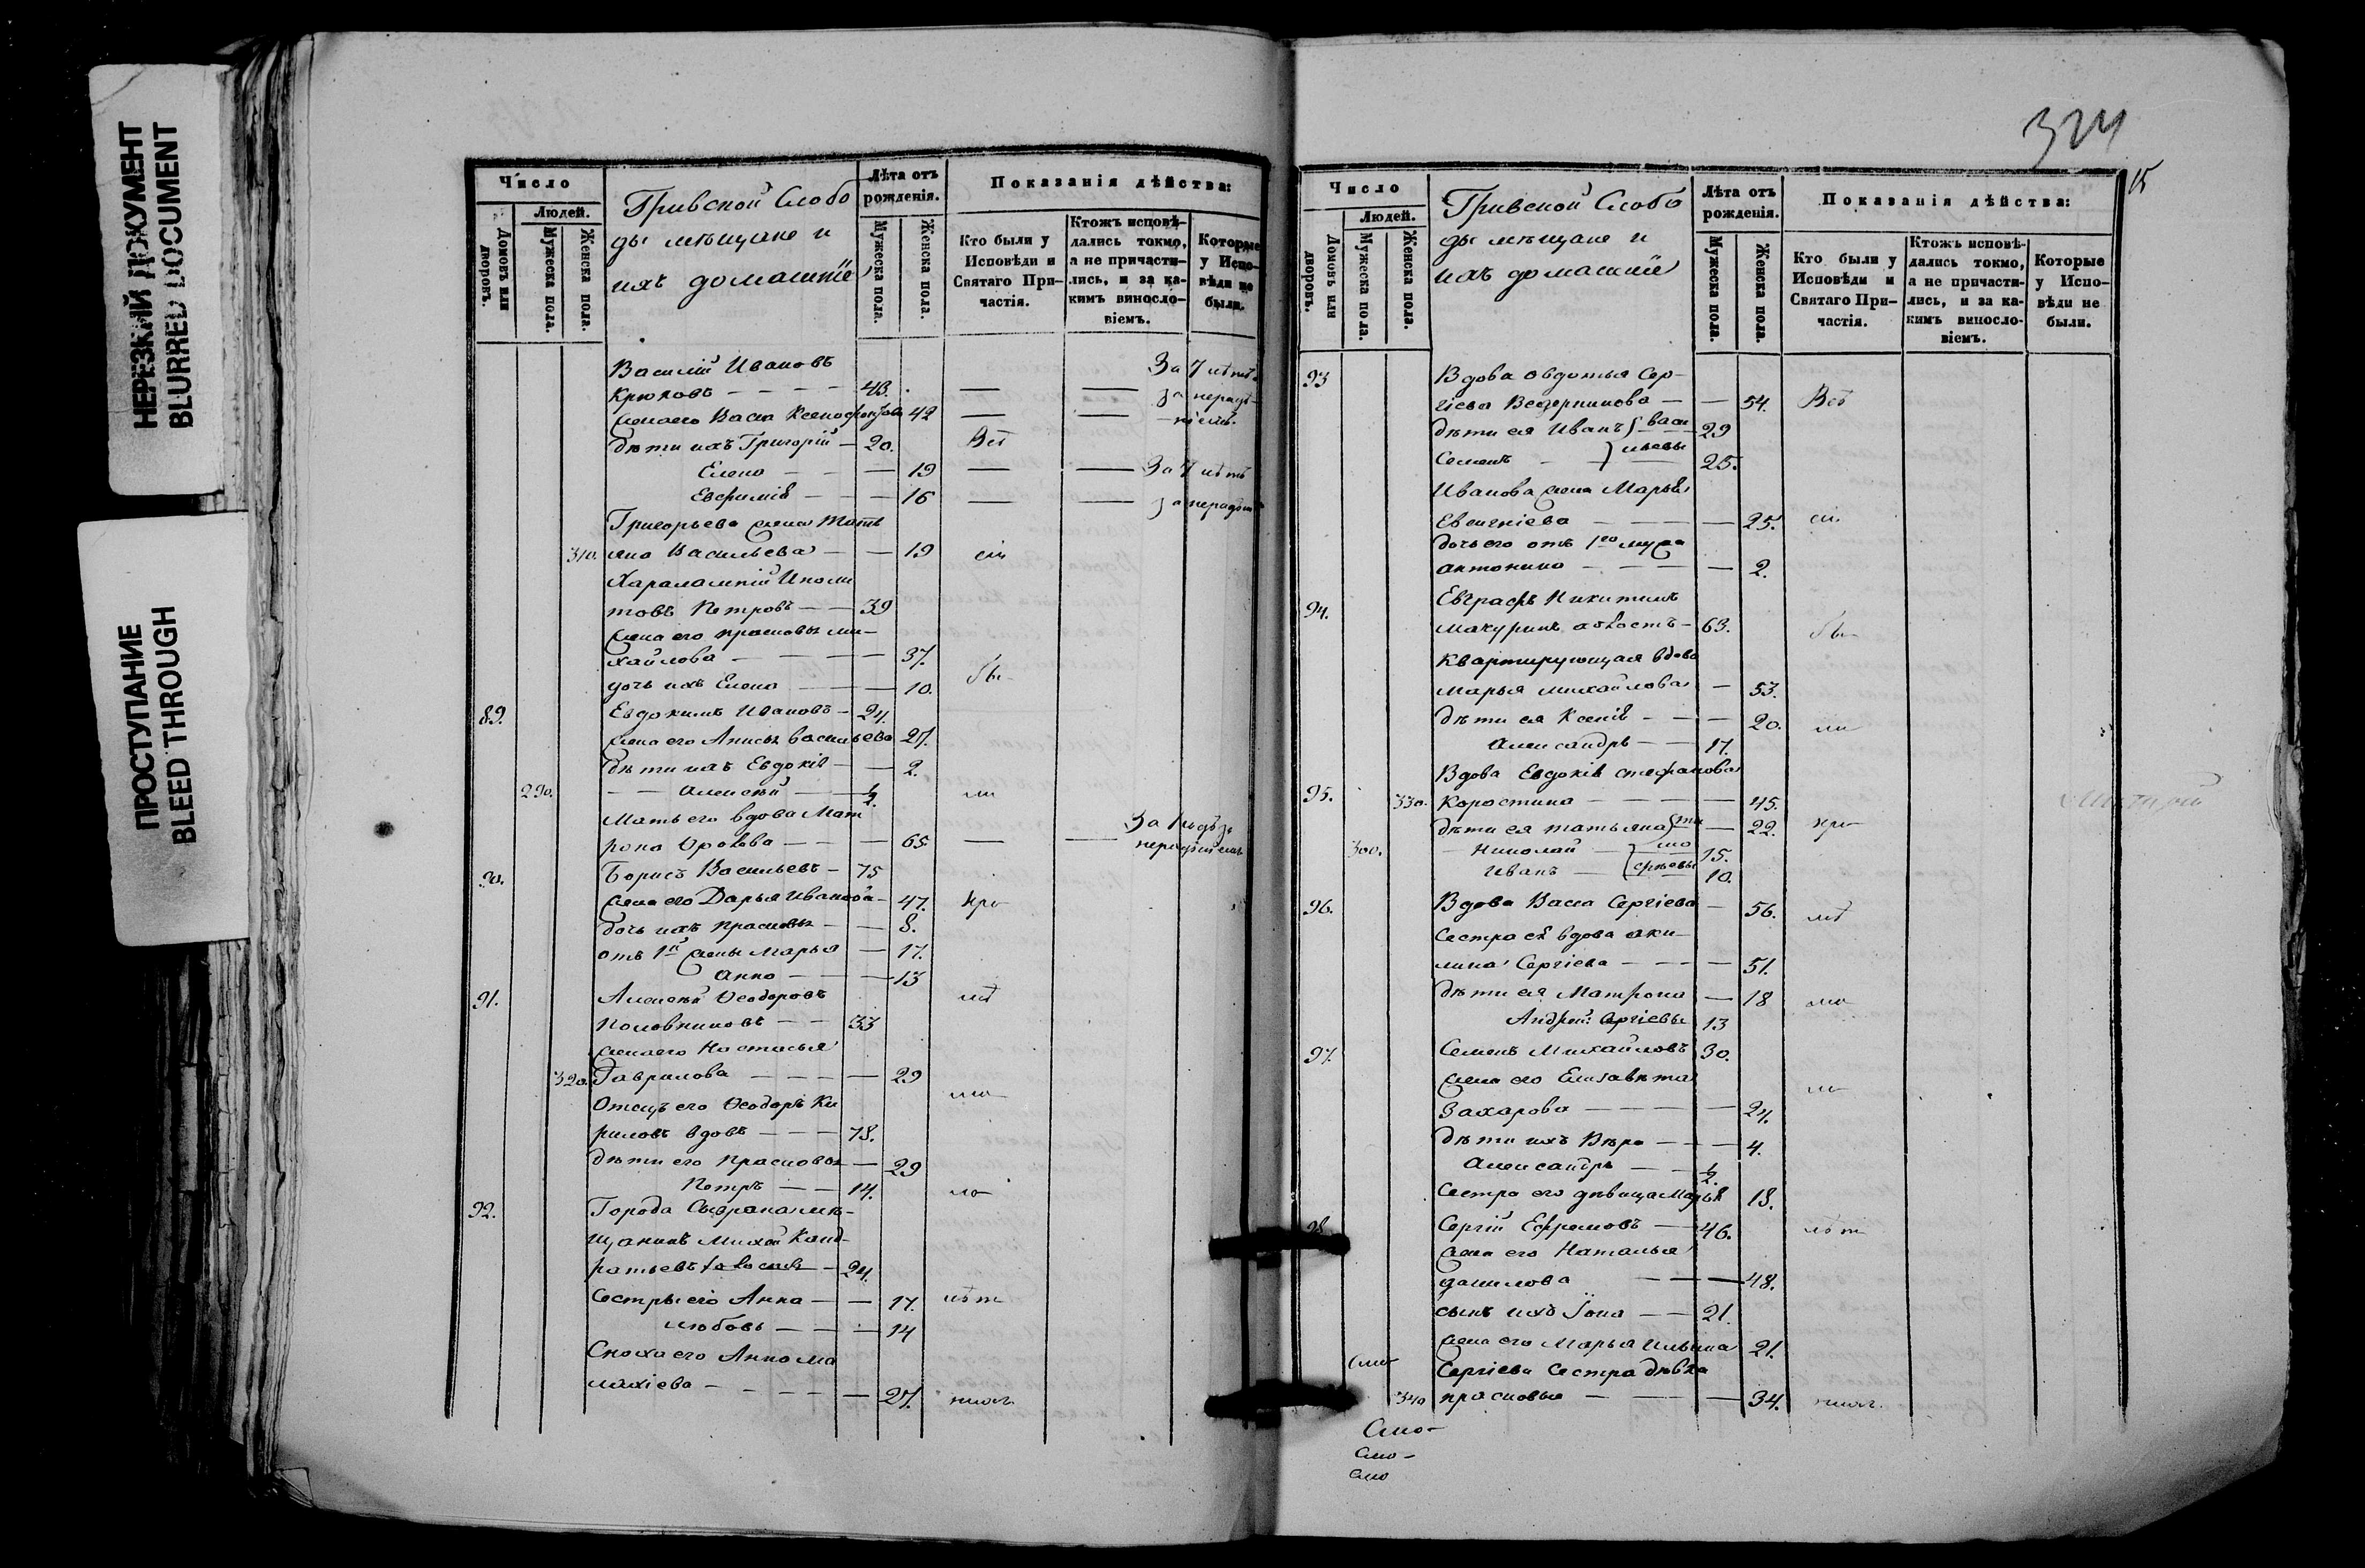 НЕРЕЗКИЙ ДОКУМЕНТ
BLURRED DOCUMENT
ПРОСТУПАНИЕ
BLEED THROUGH
Число
Людей.
Домовъ или дворовъ.
Мужеска пола.
Женска пола.
Гривской Слобо
ды мѣщане и
ихъ домашніе
Лѣта отъ рожденія.
Мужеска пола.
Женска пола.
Показанія дѣйства:
Кто были у Исповѣди и Святаго Причастія.
Ктожъ исповѣдались токмо, а не причастились, и за какимъ винословіемъ.
Которые у Исповѣди не были.
Василій Ивановъ За 7 лѣтъ
Крюковъ — 43. — — за нерадѣ-
жена его Васса Ксенофонтова 42 — — ніемъ.
дѣти ихъ Григорій — 20. Всѣ
Елена — 19 — — За 7 лѣтъ
Евфимія — 16 — — за нерадѣн
Григорьева жена Тать
310. яна Васильева — 19 сіи
Харалампій Иполи
товъ Петровъ — 39
жена его Прасковья Ми-
хайлова — 37.
дочь ихъ Елена — 10. бы-
89. Евдокимъ Ивановъ — 24.
жена его Анисья Васильева 27.
дѣти ихъ Евдокія — 2.
290. — Алексѣй — 1/2. ли
Мать его вдова Мат
рона — 65 — — За
90. Борисъ Васильевъ — 75
жена его Дарья Иванова — 47. при
дочь ихъ Прасковья — 8.
отъ 1й жены Марья — 17.
Анна — 13
91. Алексѣй Ѳеодоровъ
Половниковъ — 33
жена его Настасья
320. Гаврилова — 29
Отецъ его Ѳеодоръ Ки
риловъ вдовъ — 78.
дѣти его Прасковья — 29
Петръ — 14.
92. Города Сызрана мѣ-
щанинъ Михаи Конд-
ратьевъ — 24.
Сестры его Анна — 17. лѣт
Любовь — 14
Сноха его Анна Ма
лахіева — 27.
324
15
Число
Людей.
Домовъ или дворовъ.
Мужеска пола.
Женска пола.
Гривской Слобо
ды мѣщане и
ихъ домашніе
Лѣта отъ рожденія.
Мужеска пола.
Женска пола.
Показанія дѣйства:
Кто были у Исповѣди и Святаго Причастія.
Ктожъ исповѣдались токмо, а не причастились, и за какимъ винословіемъ.
Которые у Исповѣди не были.
93 Вдова Овдотья Сер-
гіева — 54. Всѣ
дѣти ея Иванъ Васи 29
Семенъ — льевы 25.
Иванова жена Марья
Евгеніева — 25. сіи
дочь его отъ 1го мужа
Антонина — 2.
94. Евграфъ Никитинъ
Макуринъ холостъ — 63. бы-
Квартирующая вдова
Марья Михайлова — 53.
дѣти ея Ксенія — 20. ли
Александръ — 17.
Вдова Евдокія Стефанова
95. 330. Коростина — 45.
дѣти ея Татьяна Ти — 22. при
300. Николай — мо 15.
Иванъ — фѣевы 10.
96. Вдова Васса Сергіева — 56.
Сестра ея вдова Аки-
лина Сергіева — 51.
дѣти ея Матрона — 18
Андрей Сергіевы 13
97. Семенъ Михайловъ 30.
жена его Елизавета
Захарова — 24.
дѣти ихъ Вѣра — 4.
Александръ — 1/2.
Сестра его дѣвица Марья 18.
98. Сергій Ефремовъ — 46. лѣт
жена его Наталья
Данилова — 48.
сынъ ихъ Іона — 21.
жена его Марья Ильина 21.
Сергіева сестра дѣвка
340 Прасковья — 34.